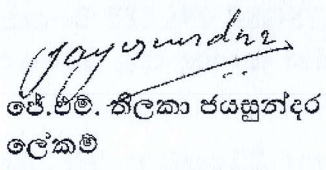 ජේ.එම්. තිලකා ජයසුන්දර
ලේකම්